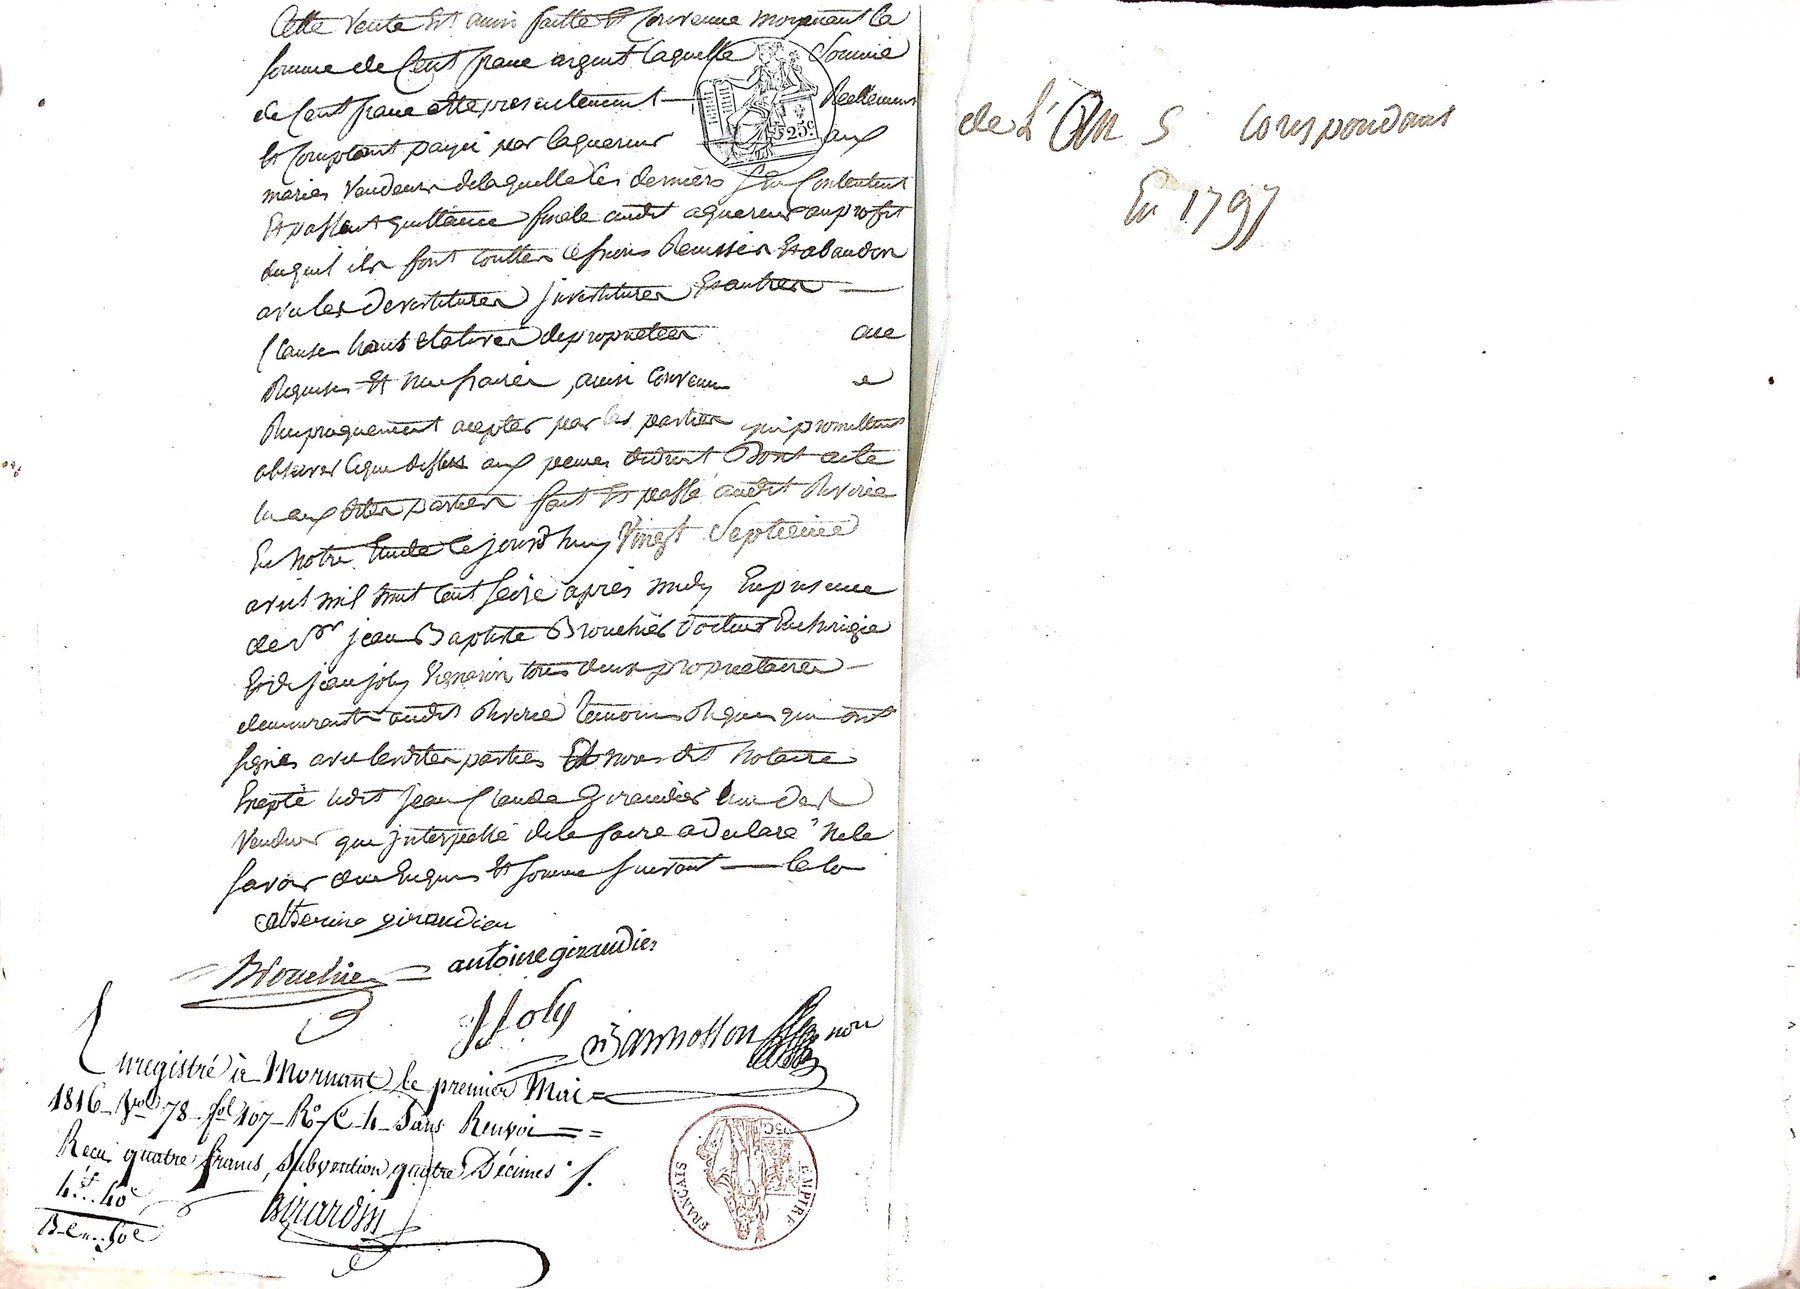 Cette vente Est ainsi faitte Et Convenue moyenant la
somme de Cent franc argent laquelle Somme
de Cent franc Ette presentement Reellement
Et Comptant payé par laquereur aux
mariés vendeurs de laquelle Ces derniers Contentent
Et passent quittance finale audit aquereur au profit
duquel ils font toutte Remission Et abandon
avec les devestitures jnvestitures Et autres
Clauses translatives de proprietées
Requises Et necessaires, ainsi Convenu
Reciproquement acepter par les parties qui promettent
observer Ceque dessus aux peines de droit Dont acte
lu aux dites parties fait Et passé audit Riverie
En notre Etude Ce jourd'huy Vingt Septieme
avril mil huit Cent Seize après midy En presence
de Sr jean Baptiste Brouchier Docteur En chirurgie
Et de jean joly vigneron tous deux proprietaires
demeurants audit Riverie temoins Requis qui ont
signés avec lesdites parties Et nous dit Notaire
Excepté ledit jean Claude Giraudier l'un des
vendeur que jnterpellé de le faire a declaré Ne le
savoir de Ce Enquis Et sommé suivant la loi
catherine giraudier
Brouchier antoine giraudier
JJoly Bannosson
Enregistré à Mornant le premier Mai
1816 Vol 78 fol 107 Ro C 4 Sans Renvoi
Recu quatre francs, Subvention quatre Décimes
4f 40c
Girardin
525c
EMPIRE FRANCAIS
de L'An 5 Corespondant
En 1797